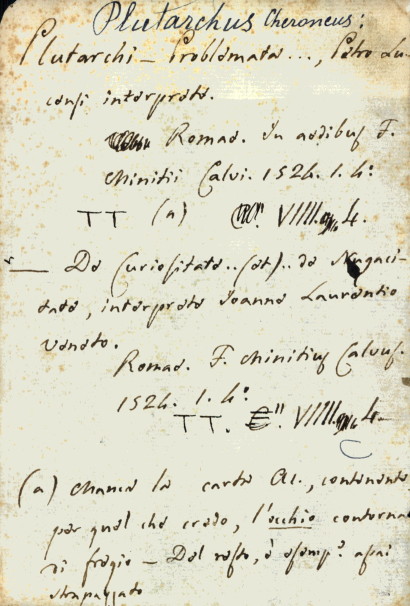 Plutarchus Cheroneus:
Plutarchi – Problemata ..., Petro Lu-
censi interprete.
Romae. In aedibus F.
Minitii Calvi. 1524. 1. 4°
TT (a) VIIII. 4.
— De Curiositate..(et).. de Nugaci-
tate, interprete Joanne Laurentio
Veneto.
Romae. F. Minitius Calvus.
1524. 1. 4°:
TT. VIIII. 4.
(a) Manca la carta Ai., contenente
per quel che credo, l'occhio contornato
di fregio – Del resto, è esemp.e assai
strapazzato